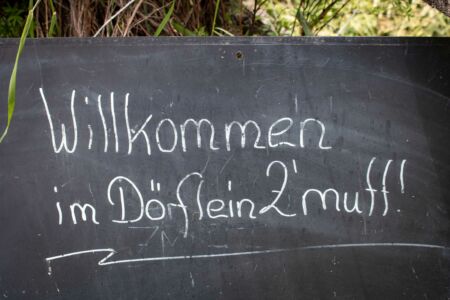 Willkommen
im Dörflein Z'mutt!